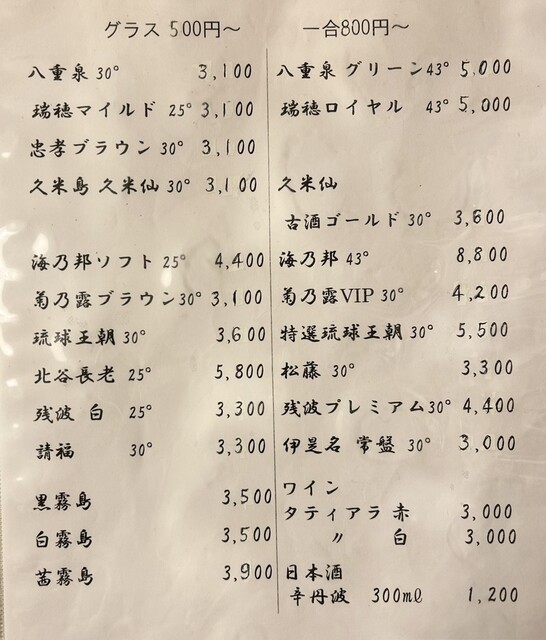 グラス 500円～
八重泉 30° 3,100
瑞穂マイルド 25° 3,100
忠孝ブラウン 30° 3,100
久米島 久米仙 30° 3,100
海乃邦ソフト 25° 4,400
菊乃露ブラウン30° 3,100
琉球王朝 30° 3,600
北谷長老 25° 5,800
残波 白 25° 3,300
請福 30° 3,300
黒霧島 3,500
白霧島 3,500
茜霧島 3,900
一合800円～
八重泉 グリーン43° 5,000
瑞穂ロイヤル 43° 5,000
久米仙
古酒ゴールド 30° 3,600
海乃邦 43° 8,800
菊乃露VIP 30° 4,200
特選琉球王朝 30° 5,500
松藤 30° 3,300
残波プレミアム30° 4,400
伊是名 常盤 30° 3,000
ワイン
タティアラ 赤 3,000
〃 白 3,000
日本酒
辛丹波 300ml 1,200